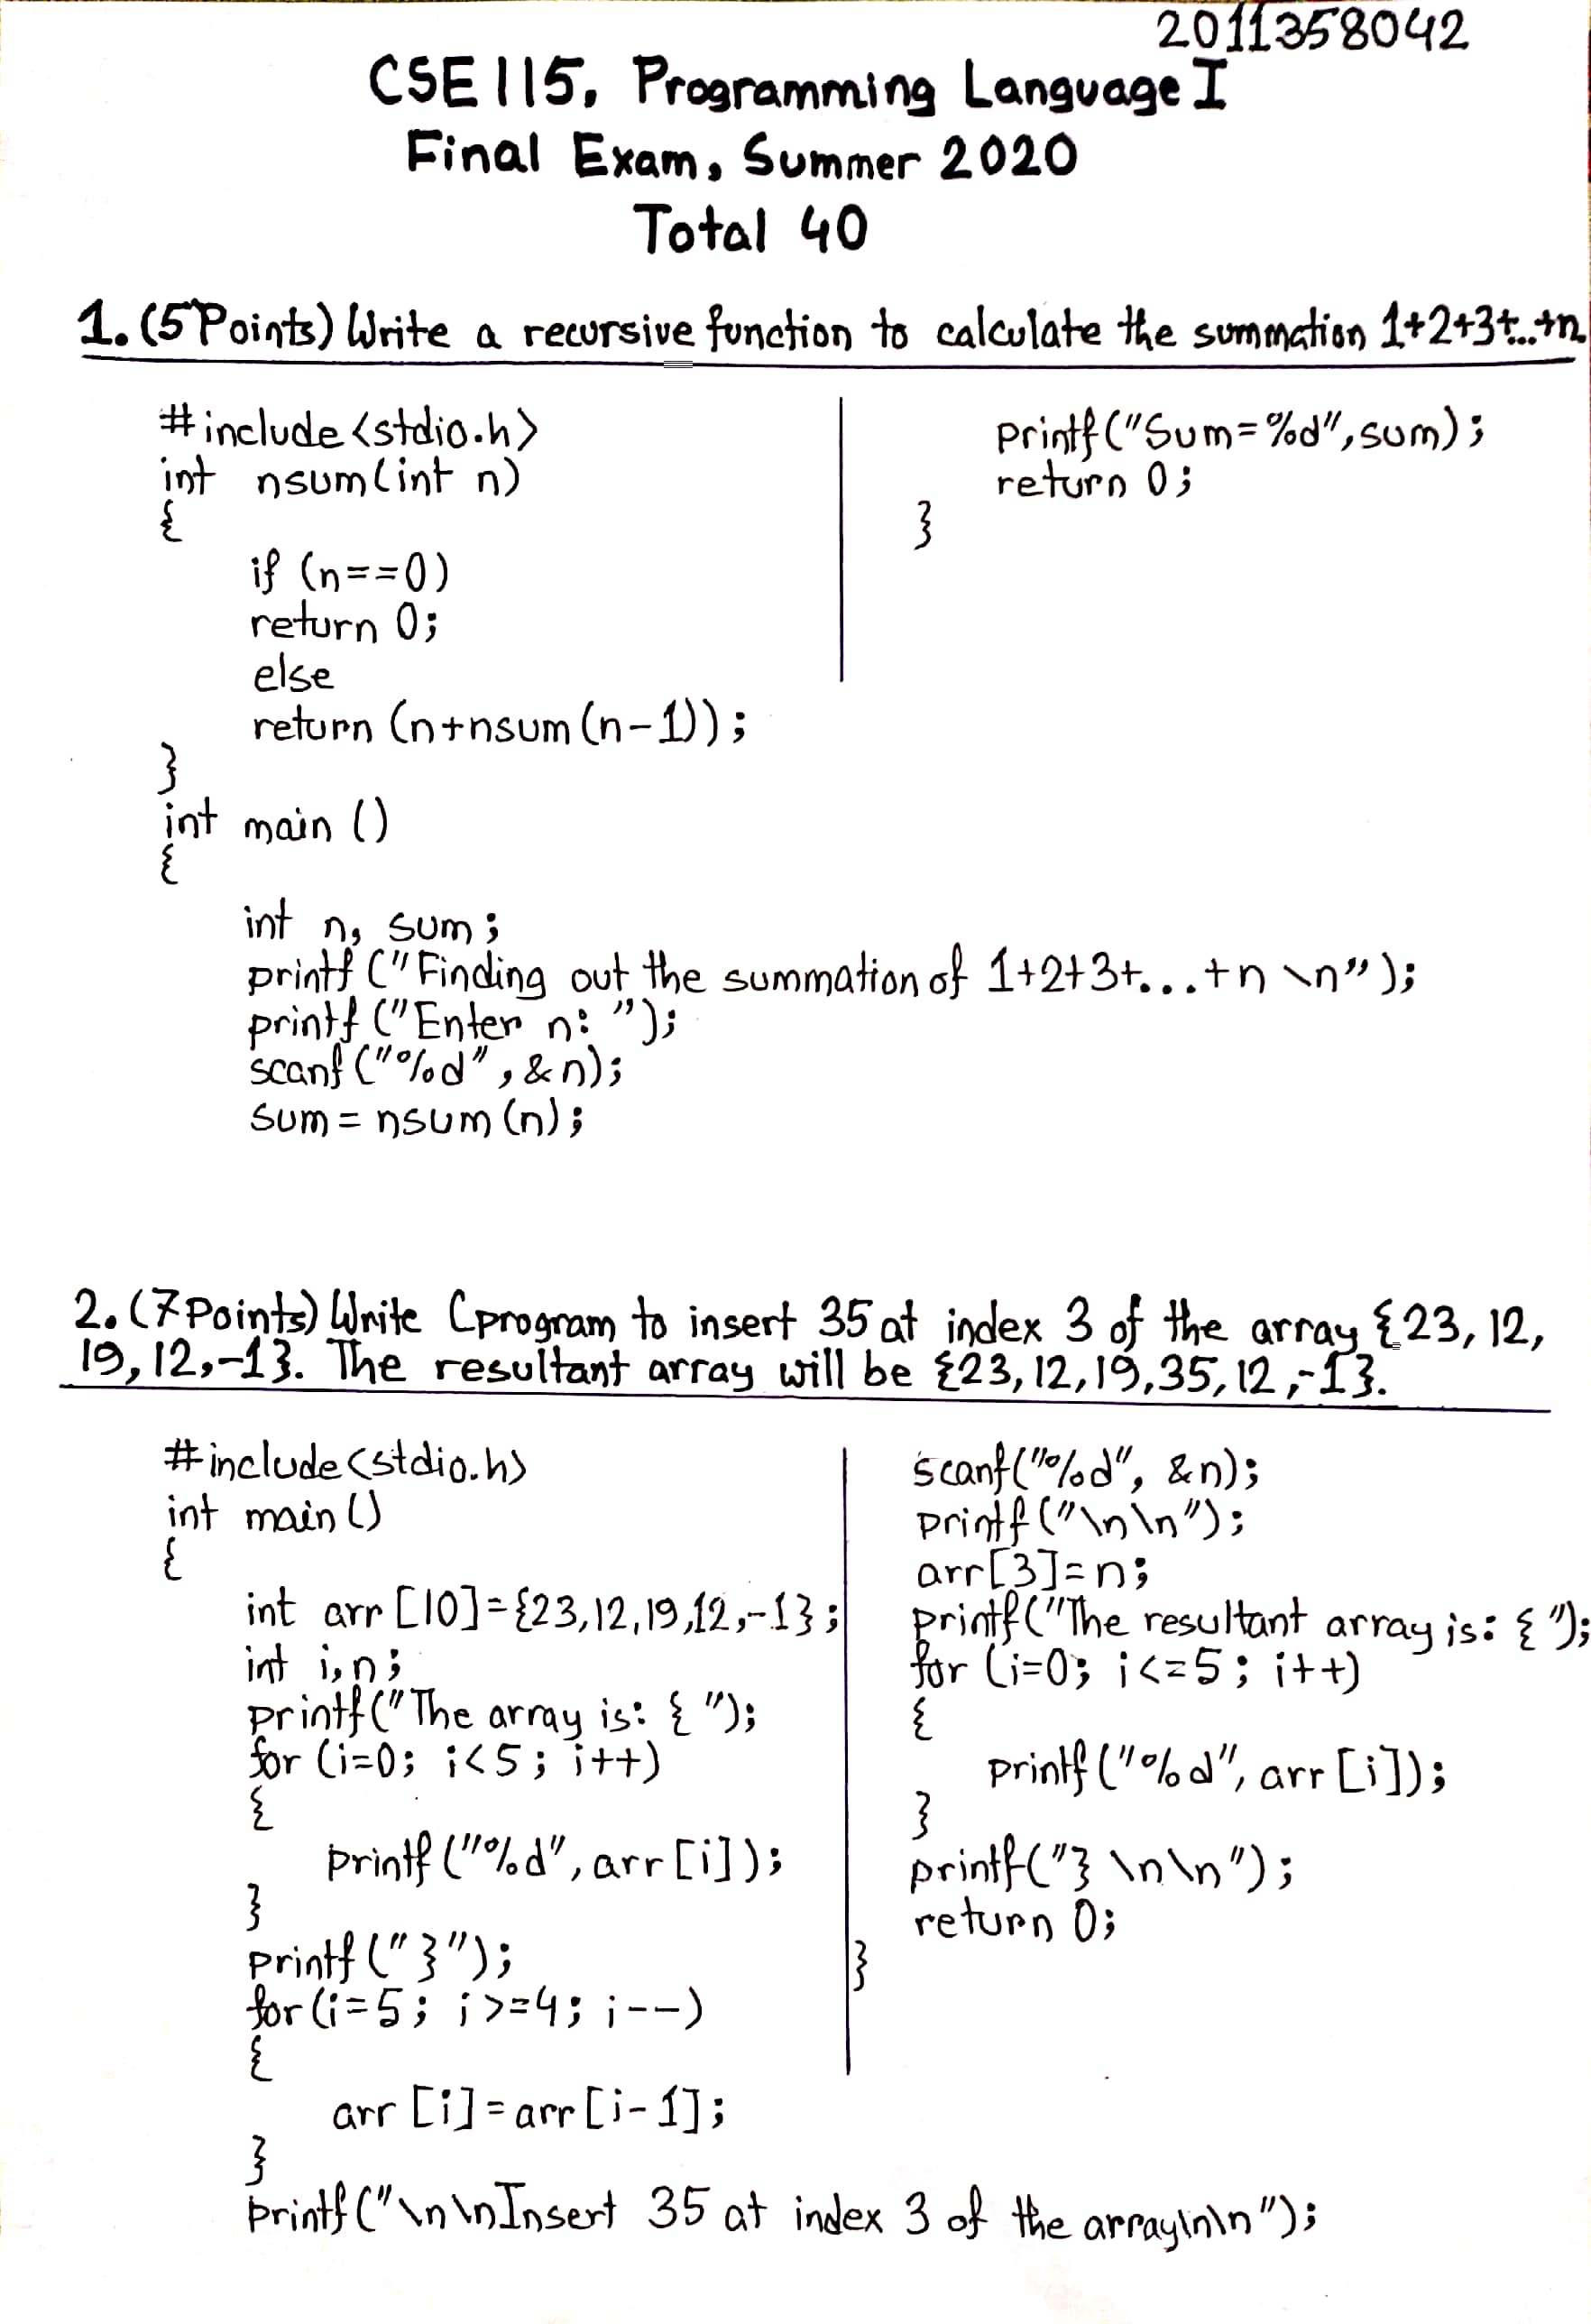 2011358042
CSE 115, Programming Language I
Final Exam, Summer 2020
Total 40
1. (5 Points) Write a recursive function to calculate the summation 1+2+3+...+n.
#include <stdio.h>
int nsum(int n)
{
if (n==0)
return 0;
else
return (n+nsum(n-1));
}
int main ()
{
int n, sum;
printf ("Finding out the summation of 1+2+3+...+n \n");
printf ("Enter n: ");
scanf ("%d", &n);
sum = nsum (n);
printf("Sum=%d",sum);
return 0;
}
2. (7 Points) Write C program to insert 35 at index 3 of the array {23, 12,
19, 12,-1}. The resultant array will be {23, 12, 19, 35, 12, -1}.
#include<stdio.h>
int main ()
{
int arr [10]={23,12,19,12,-1};
int i,n;
printf("The array is: { ");
for (i=0; i<5; i++)
{
printf ("%d", arr [i]);
}
printf (" }");
for(i=5; i>=4; i--)
{
arr [i]=arr[i-1];
}
printf("\n\nInsert 35 at index 3 of the array\n\n");
scanf("%d", &n);
printf ("\n\n");
arr[3]=n;
printf("The resultant array is: { ");
for (i=0; i<=5; i++)
{
printf ("%d", arr [i]);
}
printf("} \n\n");
return 0;
}